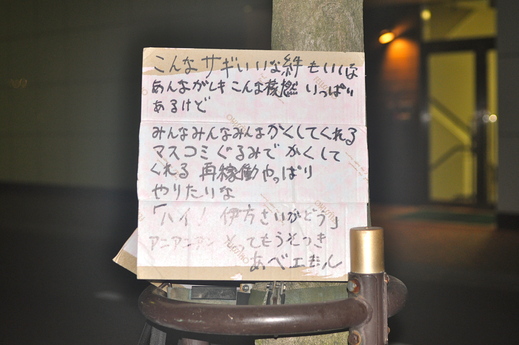 こんなサギいいな絆もいいな
あんなガレキこんな核燃いっぱい
あるけど
みんなみんなみんなかくしてくれる
マスコミぐるみでかくして
くれる 再稼働やっぱり
やりたいな
「ハイ！伊方さいがどう」
アンアンアン とってもうそつき
あべエもん